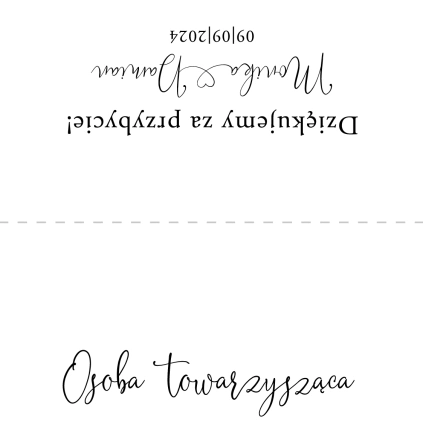 Dziękujemy za przybycie!
Monika ♡ Damian
09|09|2024
Osoba towarzysząca